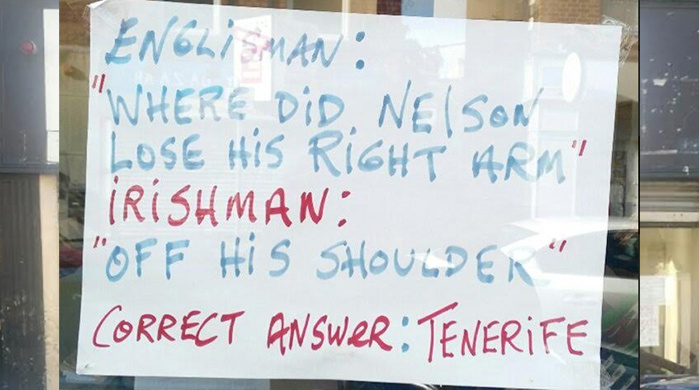 ENGLiSMAN:
"WHERE DiD NElSON
LOSE HiS RiGHT ARM"
iRiSHMAN:
"OFF HiS SHOULDER"
CORRECT ANSWER: TENERiFE